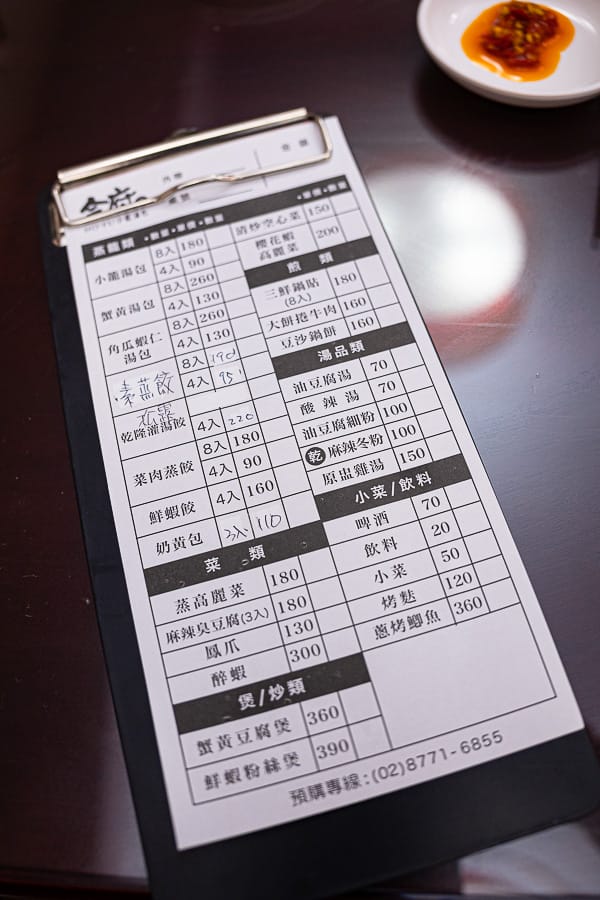 蒸籠類 •數量•單價•數量
小籠湯包 8入 180
4入 90
蟹黃湯包 8入 260
4入 130
角瓜蝦仁
湯包 8入 260
4入 130
素蒸餃 8入 190
4入 95
松露
乾隆灌湯餃 4入 220
菜肉蒸餃 8入 180
4入 90
鮮蝦餃 4入 160
奶黃包 3入 110
菜類
蒸高麗菜 180
麻辣臭豆腐(3入) 180
鳳爪 130
醉蝦 300
煲/炒類
蟹黃豆腐煲 360
鮮蝦粉絲煲 390
•單價•數量
清炒空心菜 150
櫻花蝦
高麗菜 200
煎類
三鮮鍋貼
(8入) 180
大餅捲牛肉 160
豆沙鍋餅 160
湯品類
油豆腐湯 70
酸辣湯 70
油豆腐細粉 100
乾 麻辣冬粉 100
原盅雞湯 150
小菜/飲料
啤酒 70
飲料 20
小菜 50
烤麩 120
蔥烤鯽魚 360
預購專線:(02)8771-6855